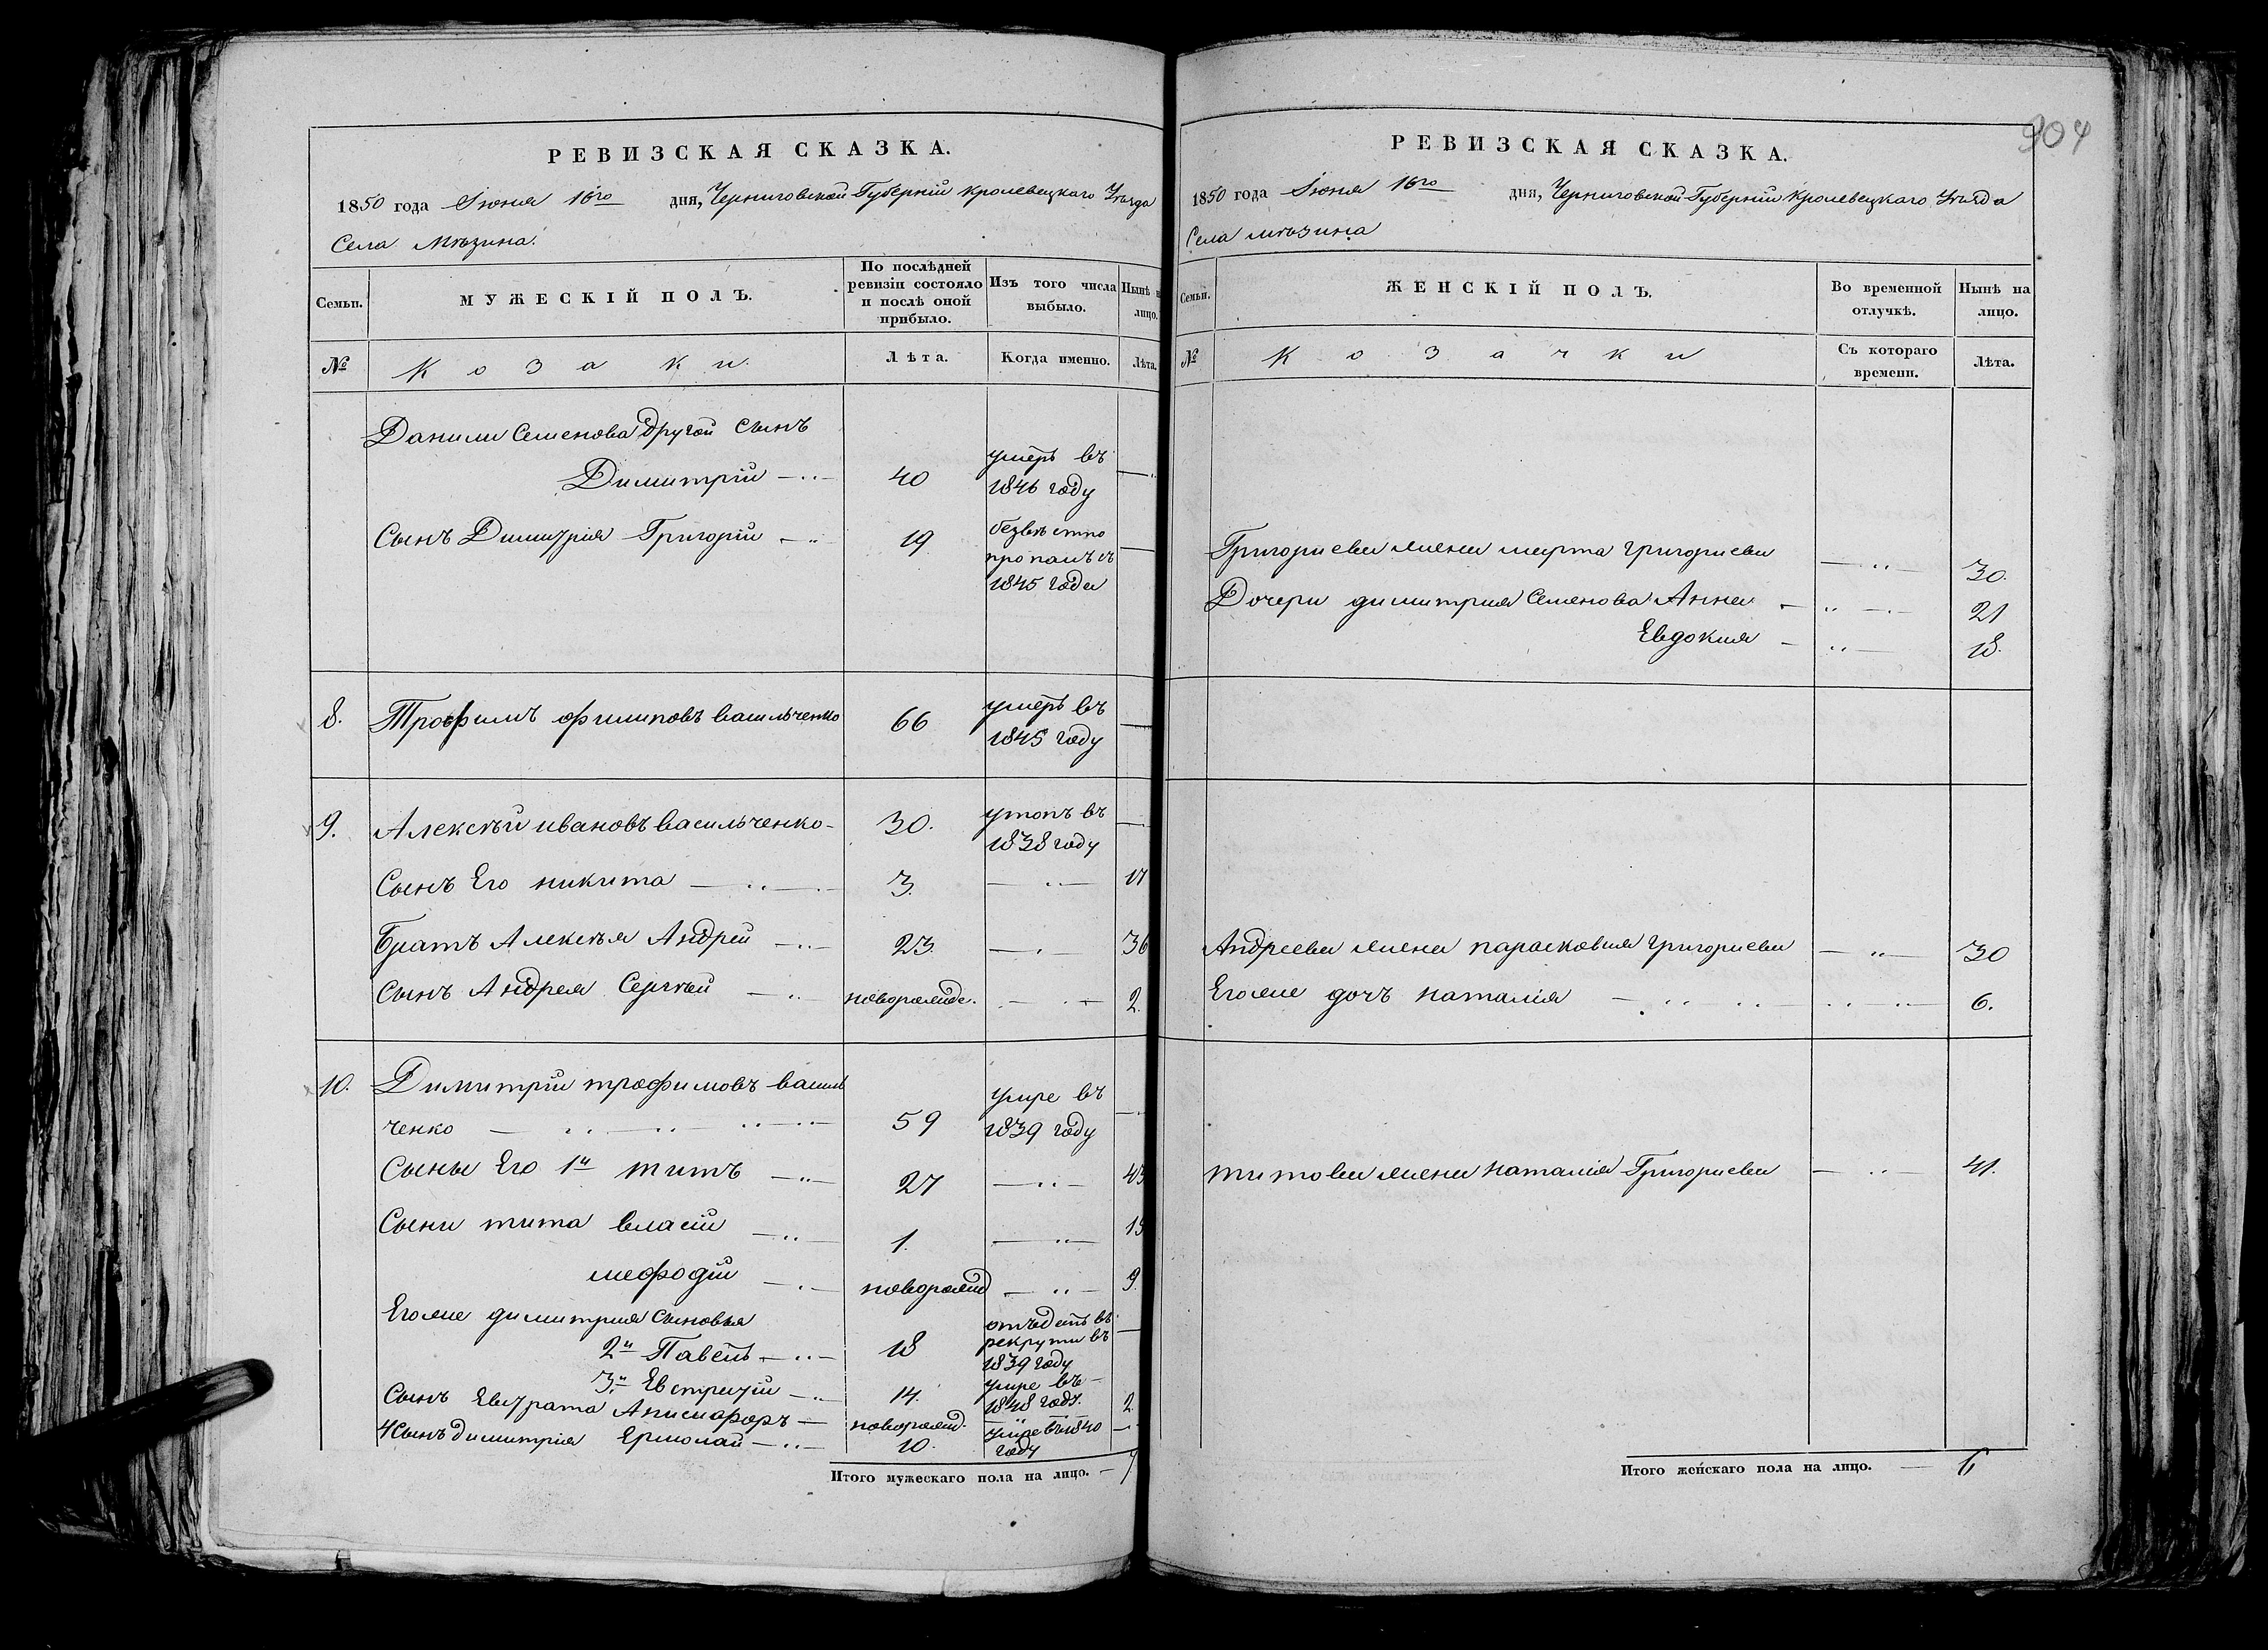 РЕВИЗСКАЯ СКАЗКА.
1850 года Іюня 16го дня, Черниговской Губерніи Кролевецкаго Уѣзда
Села Мѣзина.
Семьи.
МУЖЕСКІЙ ПОЛЪ.
По послѣдней ревизіи состояло и послѣ оной прибыло.
Изъ того числа выбыло.
Нынѣ на лицо.
№
Козаки.
Лѣта.
Когда именно.
Лѣта.
Данили Семенова другой сынъ
Димитрій 40 умеръ въ 1846 году
Сынъ Димитрія Григорій 19 безвѣстно пропалъ съ 1845 года
8. Трофимъ Филиповъ Васильченко 66 умеръ въ 1845 году
9. Алексѣй Ивановъ Васильченко 30. утопъ въ 1838 году
Сынъ Его Никита 3. 17
Братъ Алексѣя Андрей 23. 36
Сынъ Андрея Сергѣй новорожде. 2.
10. Димитрій Трофимовъ Василь
ченко 59 умре въ 1839 году
Сыны Его 1й Титъ 27 43
Сыни Тита Власій 1. 15
Мефодій новорожд 9.
Егоже Димитрія Сыновья
2й Павелъ 18 отъданъ въ рекруты въ 1839 году
3й Евстратій 14. умре въ 1848 году.
Сынъ Евстрата Анисифоръ новорожд. 2
4 Сынъ Димитрія Ермолай 10. умре въ 1840 году
Итого мужескаго пола на лицо. 7
904
РЕВИЗСКАЯ СКАЗКА.
1850 года Іюня 16го дня, Черниговской Губерніи Кролевецкаго Уѣзда
Села Мѣзина
Семьи.
ЖЕНСКІЙ ПОЛЪ.
Во временной отлучкѣ.
Нынѣ на лицо.
№
Козачки
Съ котораго времени.
Лѣта.
Григориева жена Марта Григориева 30.
Дочери Димитрия Семенова Анна 21
Евдокия 18.
Андреева жена Парасковия Григориева 30
Егоже дочъ Наталія 6.
Титова жена Наталія Григориева 41.
Итого женскаго пола на лицо. 6